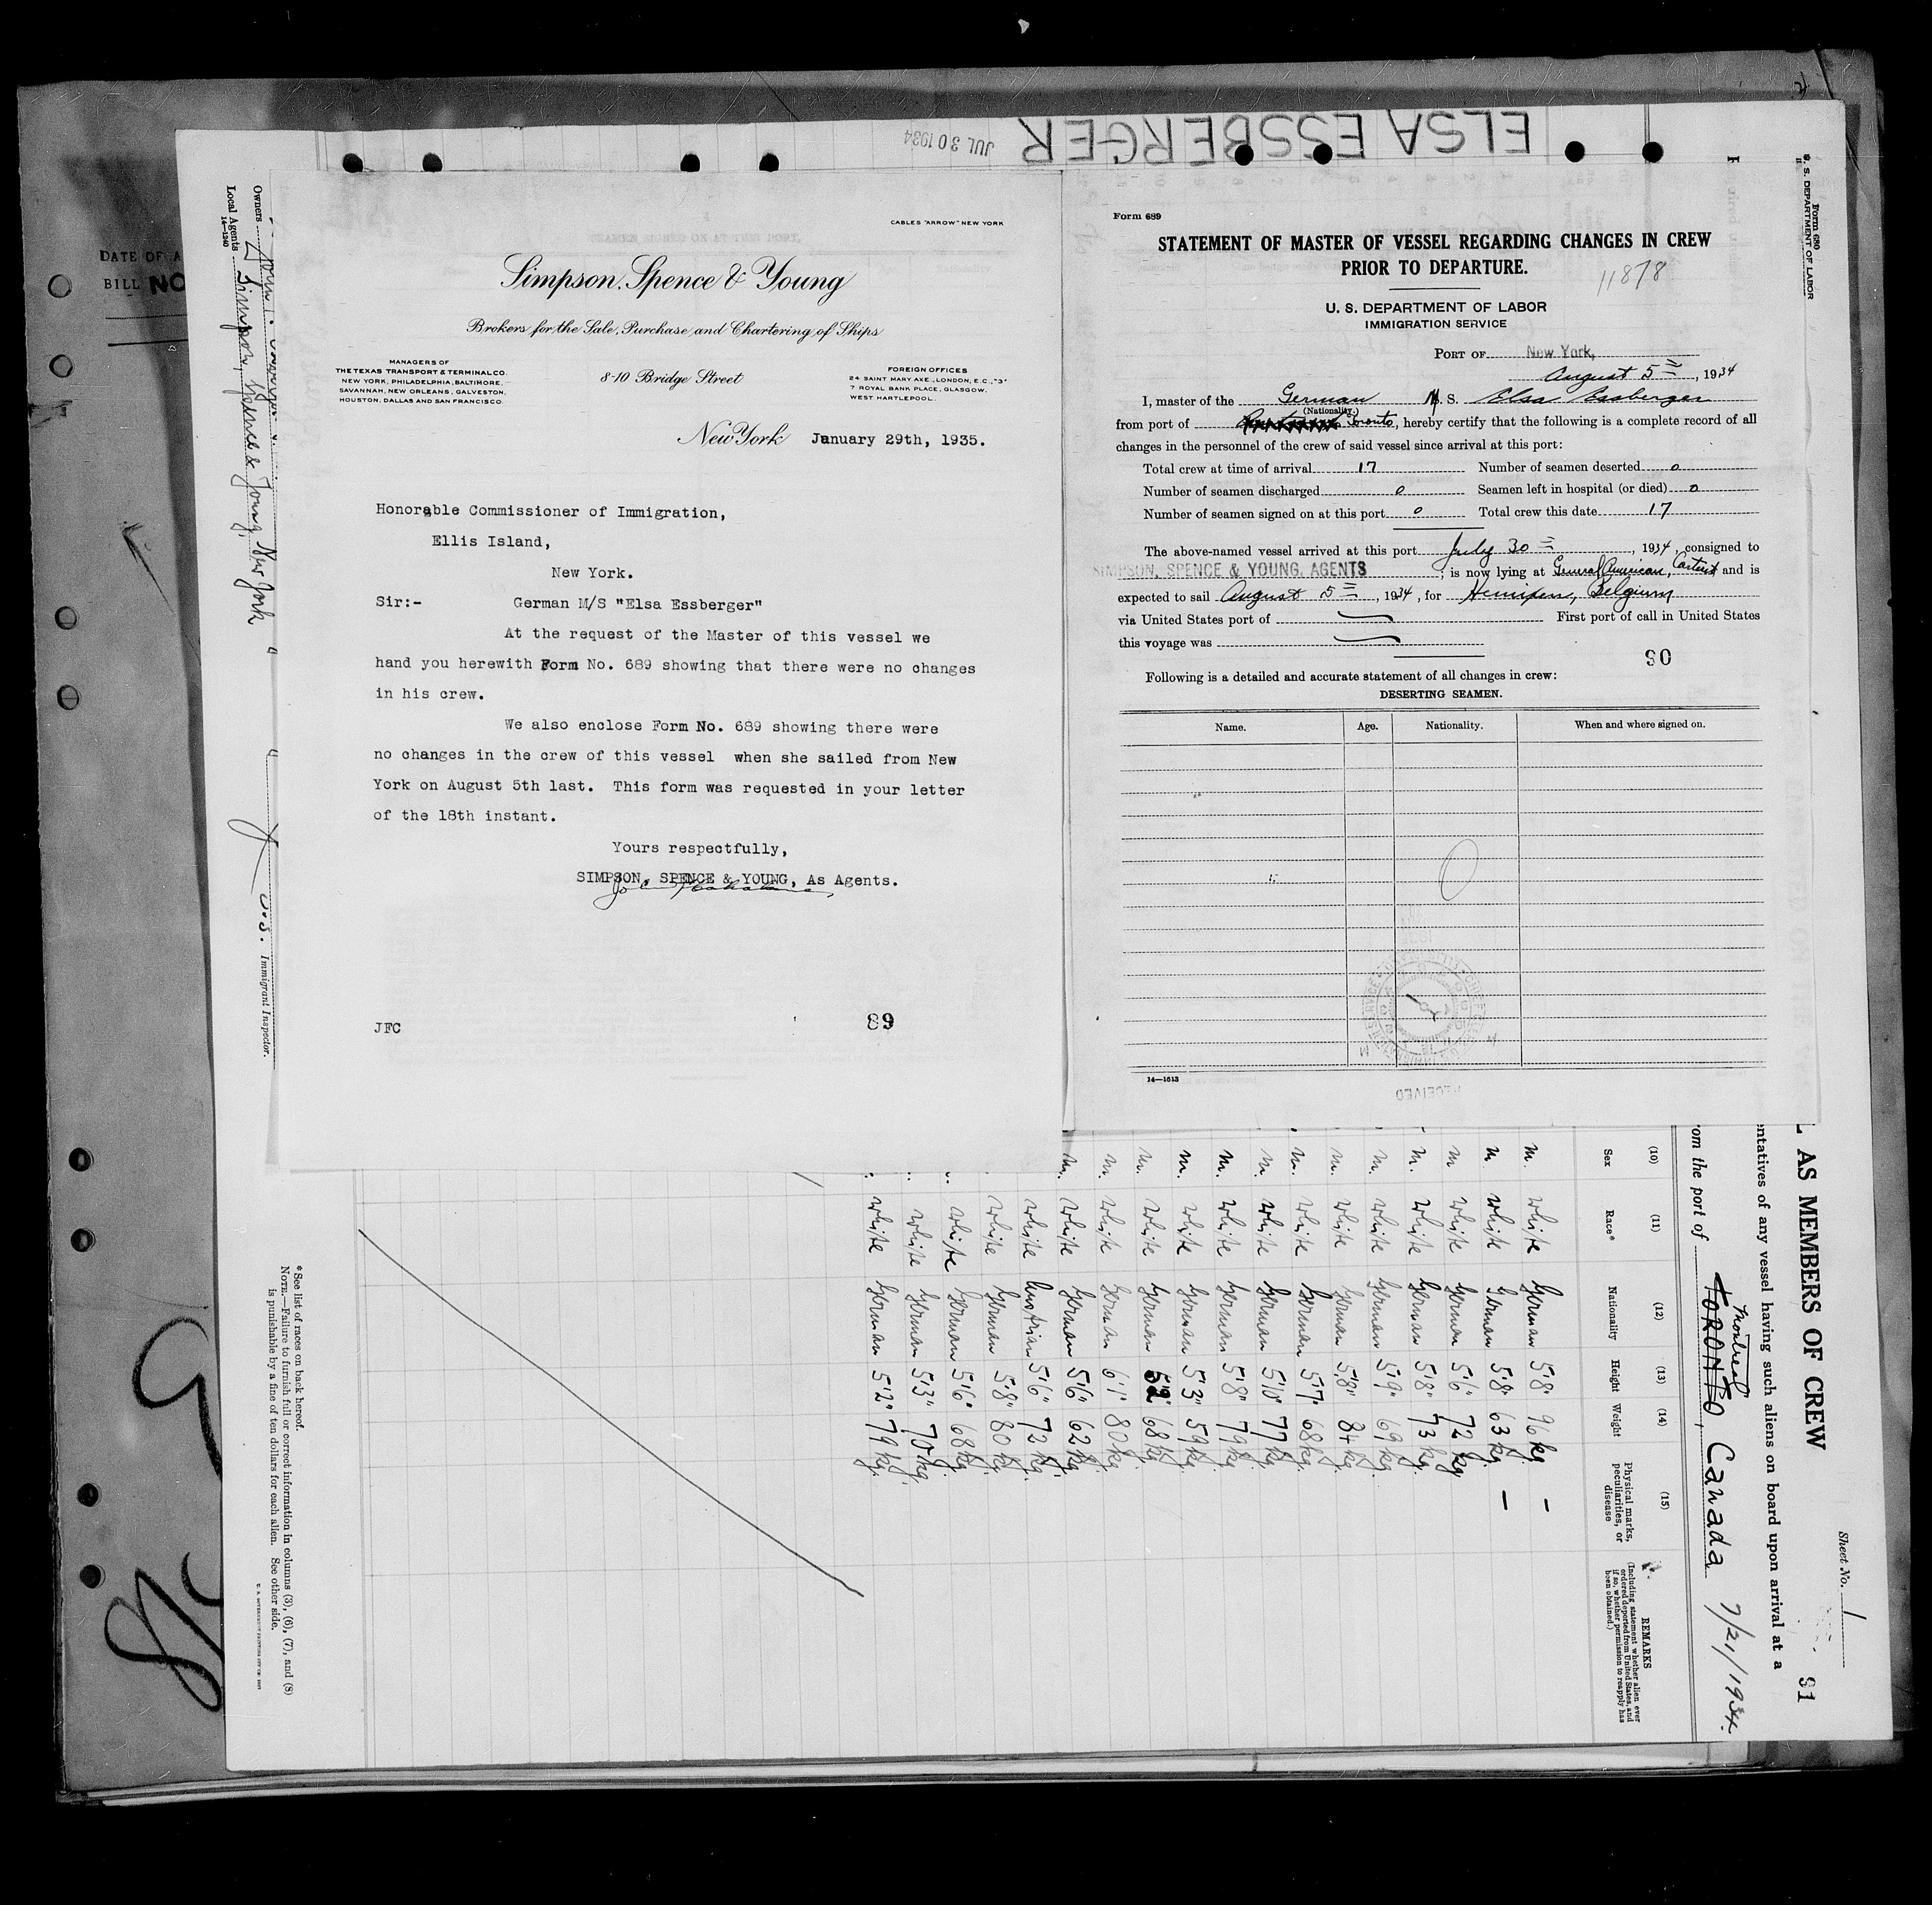 ELSA ESSBERGER
JUL 30 1934
DATE OF A
BILL NO
Owners
Local Agents Simpson, Spence & Young, New York
14-1240
Immigrant Inspector.
CABLES "ARROW" NEW YORK
Simpson, Spence & Young
Brokers for the Sale, Purchase and Chartering of Ships
MANAGERS OF
THE TEXAS TRANSPORT & TERMINAL CO.
NEW YORK, PHILADELPHIA, BALTIMORE,
SAVANNAH, NEW ORLEANS, GALVESTON,
HOUSTON, DALLAS AND SAN FRANCISCO.
8-10 Bridge Street
FOREIGN OFFICES
24 SAINT MARY AXE., LONDON, E.C., "3"
7 ROYAL BANK PLACE, GLASGOW.
WEST HARTLEPOOL.
New York January 29th, 1935.
Honorable Commissioner of Immigration,
Ellis Island,
New York.
Sir:- German M/S "Elsa Essberger"
At the request of the Master of this vessel we
hand you herewith Form No. 689 showing that there were no changes
in his crew.
We also enclose Form No. 689 showing there were
no changes in the crew of this vessel when she sailed from New
York on August 5th last. This form was requested in your letter
of the 18th instant.
Yours respectfully,
SIMPSON, SPENCE & YOUNG, As Agents.
JFC
89
Form 689
STATEMENT OF MASTER OF VESSEL REGARDING CHANGES IN CREW
PRIOR TO DEPARTURE.
11878
U. S. DEPARTMENT OF LABOR
IMMIGRATION SERVICE
PORT OF New York,
August 5, 1934
I, master of the German M. S. Elsa Essberger
(Nationality.)
from port of Toronto, hereby certify that the following is a complete record of all
changes in the personnel of the crew of said vessel since arrival at this port:
Total crew at time of arrival 17 Number of seamen deserted 0
Number of seamen discharged 0 Seamen left in hospital (or died) 0
Number of seamen signed on at this port 0 Total crew this date 17
The above-named vessel arrived at this port July 30, 1934, consigned to
SIMPSON, SPENCE & YOUNG, AGENTS; is now lying at General American, Carteret and is
expected to sail August 5, 1934, for Hemixem, Belgium
via United States port of First port of call in United States
this voyage was
90
Following is a detailed and accurate statement of all changes in crew:
DESERTING SEAMEN.
Name. Age. Nationality. When and where signed on.
14-1613
RECEIVED
Form 680
U. S. DEPARTMENT OF LABOR
Sheet No. 1
91
AS MEMBERS OF CREW
entatives of any vessel having such aliens on board upon arrival at a
om the port of TORONTO Montreal, Canada 7/21/1934.
(10) (11) (12) (13) (14) (15)
Sex Race* Nationality Height Weight Physical marks, peculiarities, or disease REMARKS
(Including statement whether alien ever ordered deported from United States, and if so, whether permission to reapply has been obtained.)
m. white German 5'8" 96 kg –
m. white German 5'8" 63 kg. –
m white German 5'6" 72 kg
m. white German 5'8" 73 kg
m. white German 5'9" 69 kg
m. white German 5'8" 84 kg
m. white German 5'7" 68 kg.
m. white German 5'10" 77 kg.
m. white German 5'8" 79 kg.
m. white German 5'3" 59 kg.
m. white German 5'2" 68 kg.
m. white German 6'1" 80 kg.
m. white German 5'6" 62 kg.
white Austrian 5'6" 72 kg.
white German 5'8" 80 kg.
white German 5'6" 68 kg.
white German 5'3" 70 kg.
white German 5'2" 79 kg.
*See list of races on back hereof.
NOTE.—Failure to furnish full or correct information in columns (3), (6), (7), and (8)
is punishable by a fine of ten dollars for each alien. See other side.